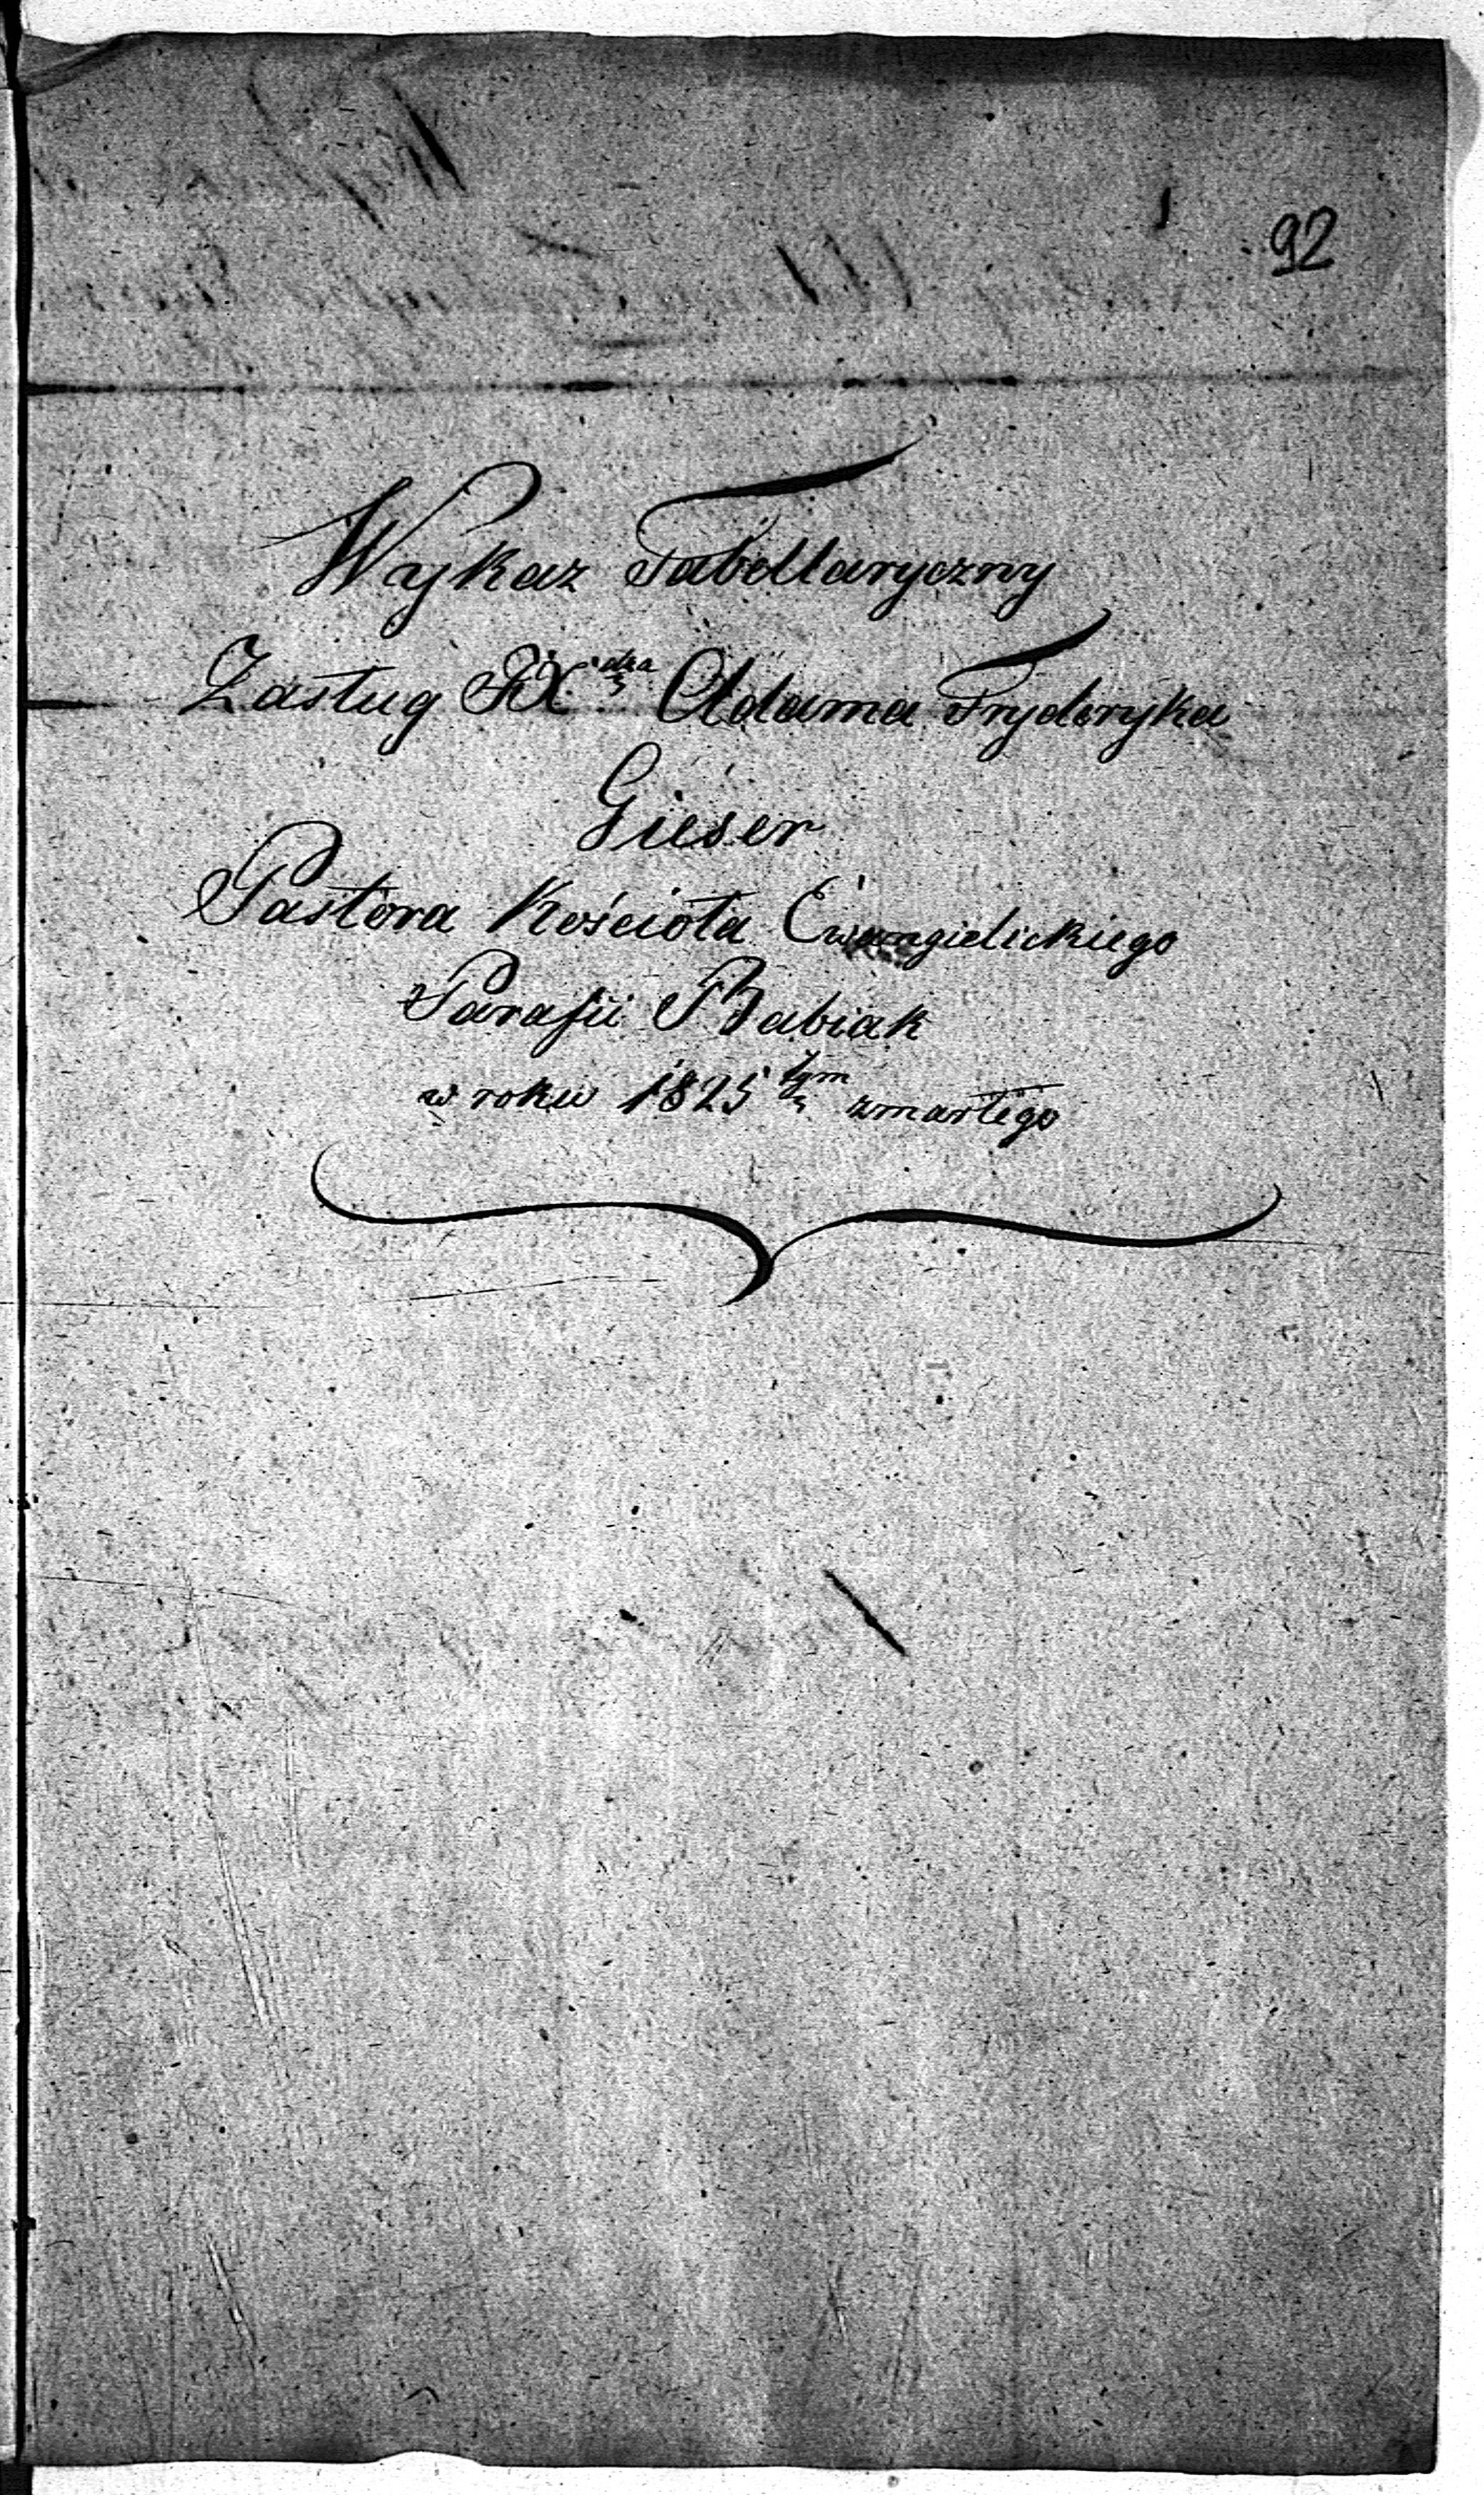 92
Wykaz Tabellaryczny
Zasług JX.dza Adama Fryderyka
Gieser
Pastora Kościoła Ewangielickiego
Parafii Babiak
w roku 1825tym zmarłego